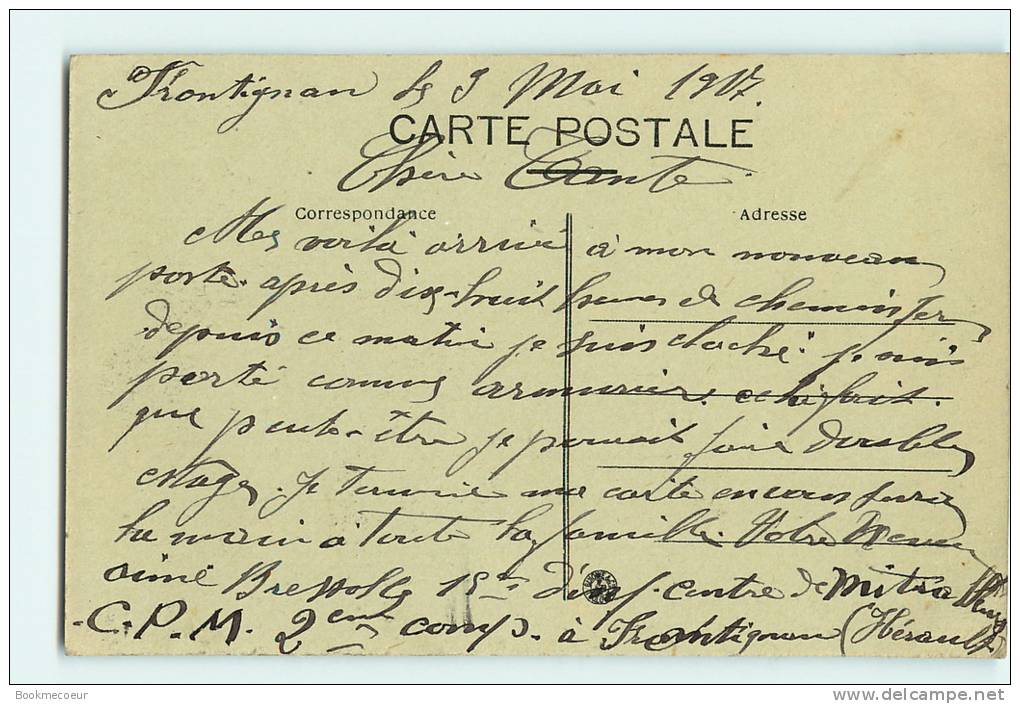 Frontignan le 9 Mai 1917.
CARTE POSTALE
Chère Tante.
Correspondance Adresse
Me voilà arrivé à mon nouveau
poste après dix-huit heures de chemin fer
depuis ce matin je suis je suis
porté comme armurier.
que peut-être je pourrait faire double
stage. Je termine ma carte en vous
la main à toute la famille Votre Neveu
aimé 15em centre de
C.P.M. 2em comp. à Frontignan (Hérault)
Bookmecoeur www.delcampe.net